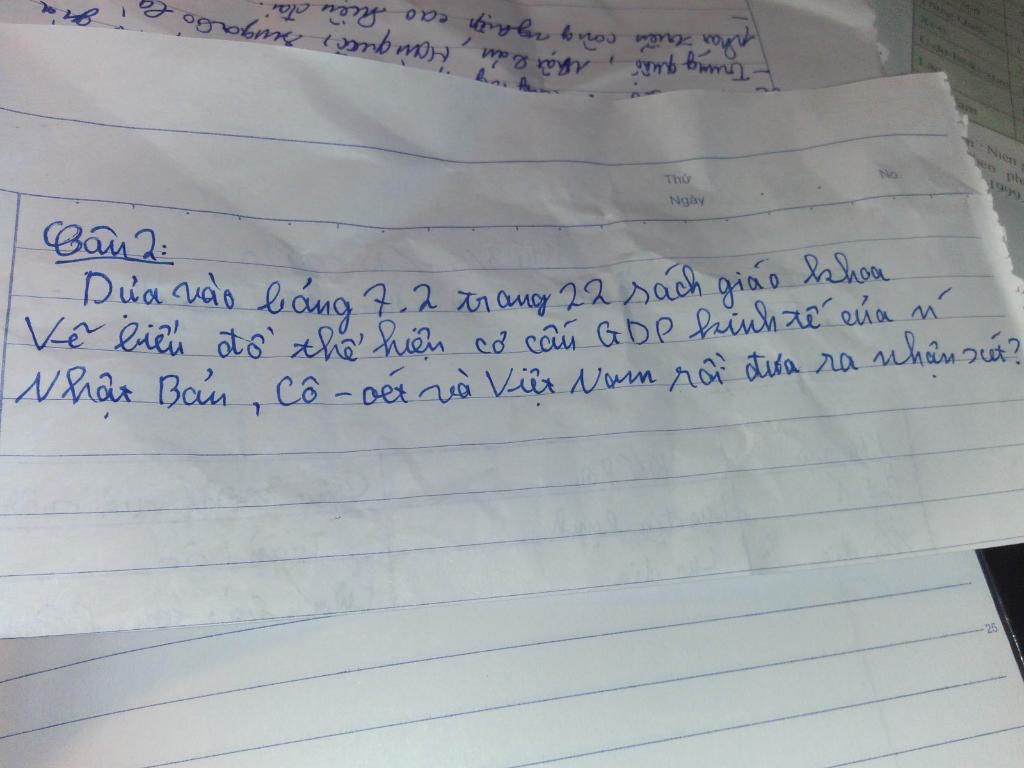 - Trung quốc, Nhật Bản, Hàn quốc, Singapo là
phát triển công nghiệp cao hiện đại.
Thứ
Ngày
No
Câu 2:
Dựa vào bảng 7.2 trang 22 sách giáo khoa
Vẽ biểu đồ thể hiện cơ cấu GDP kinh tế của n
Nhật Bản, Cô-oét và Việt Nam rồi đưa ra nhận xét?
Niên
1999
25